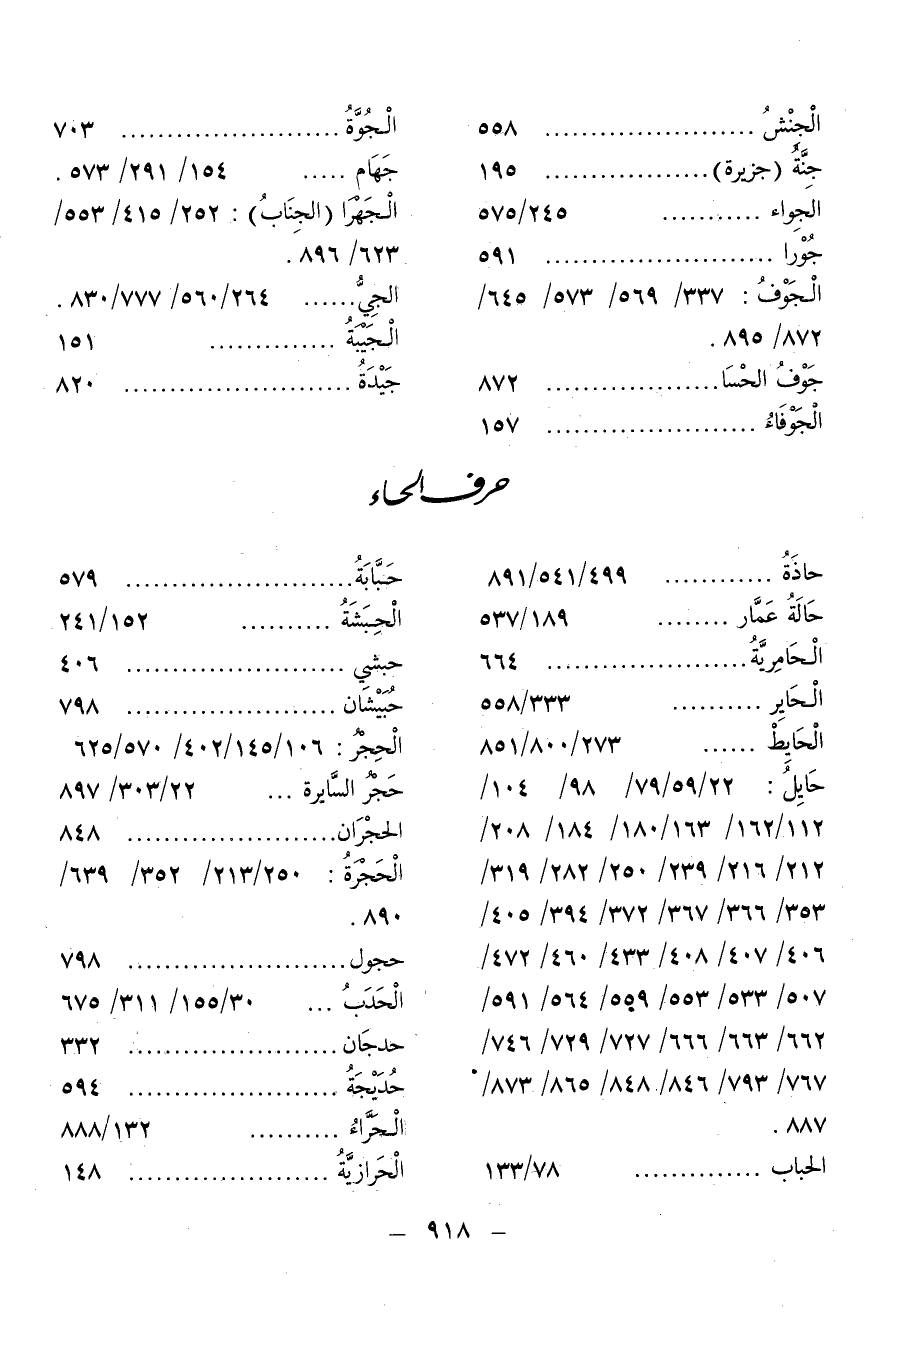 الْجِنْشُ ...................... ٥٥٨
جِنَّةُ (جزيرة) .................. ١٩٥
الجِواء ........... ٥٧٥/٢٤٥
جُوْرا ........................ ٥٩١
الْجَوْفُ : ٣٣٧/ ٥٦٩/ ٥٧٣/ ٦٤٥/
٨٧٢/ ٨٩٥ .
جَوْفُ الحْسَا ................... ٨٧٢
الْجَوْفَاءُ ....................... ١٥٧
الْجُوَّةُ ........................ ٧٠٣
جَهَام ..... ١٥٤/ ٢٩١/ ٥٧٣ .
الْجَهْرَا (الجِنَابُ) : ٢٥٢/ ٤١٥/ ٥٥٣/
٦٢٣/ ٨٩٦ .
الجِيُّ ...... ٢٦٤/ ٥٦٠/ ٧٧٧/ ٨٣٠ .
الْجَيْبَةُ ............. ١٥١
جَيْدَةُ ......................... ٨٢٠
حرف الحاء
حاذَةُ ............ ٤٩٩/ ٥٤١/ ٨٩١
حَالَةُ عَمَّار ........ ١٨٩/ ٥٣٧
الْحَامِرِيَّةُ ..................... ٦٦٤
الْحَايِر .......... ٣٣٣/ ٥٥٨
الْحَايِطْ ...... ٢٧٣/ ٨٠٠/ ٨٥١
حَايِلُ : ٢٢/ ٥٩/ ٧٩/ ٩٨/ ١٠٤/
١١٢/ ١٦٢/ ١٦٣/ ١٨٠/ ١٨٤/ ٢٠٨/
٢١٢/ ٢١٦/ ٢٣٩/ ٢٥٠/ ٢٨٢/ ٣١٩/
٣٥٣/ ٣٦٦/ ٣٦٧/ ٣٧٢/ ٣٩٤/ ٤٠٥/
٤٠٦/ ٤٠٧/ ٤٠٨/ ٤٣٣/ ٤٦٠/ ٤٧٢/
٥٠٧/ ٥٣٣/ ٥٥٣/ ٥٥٩/ ٥٦٤/ ٥٩١/
٦٦٢/ ٦٦٣/ ٦٦٦/ ٧٢٧/ ٧٢٩/ ٧٤٦/
٧٦٧/ ٧٩٣/ ٨٤٦/ ٨٤٨/ ٨٦٥/ ٨٧٣/
٨٨٧ .
الحباب .............. ٧٨/ ١٣٣
حَبَّابَةُ ......................... ٥٧٩
الْحِبَشَةُ .......... ١٥٢/ ٢٤١
حبشي ........................ ٤٠٦
حُبَيْشَان ....................... ٧٩٨
الْحِجْرُ : ١٠٦/ ١٤٥/ ٤٠٢/ ٥٧٠/ ٦٢٥
حَجْرُ السَّايرة ... ٢٢/ ٣٠٣/ ٨٩٧
الحجْرَان ....................... ٨٤٨
الْحَجْرَةُ : ٢٥٠/ ٢١٣/ ٣٥٢/ ٦٣٩/
٨٩٠ .
حجول ........................ ٧٩٨
الْحَدَبُ ... ٣٠/ ١٥٥/ ٣١١/ ٦٧٥
حدجَان ....................... ٣٣٢
حُدَيْجَةُ ....................... ٥٩٤
الْحَرَّاءُ .......... ١٣٢/ ٨٨٨
الْحَرازيَّةُ ...................... ١٤٨
— ٩١٨ —